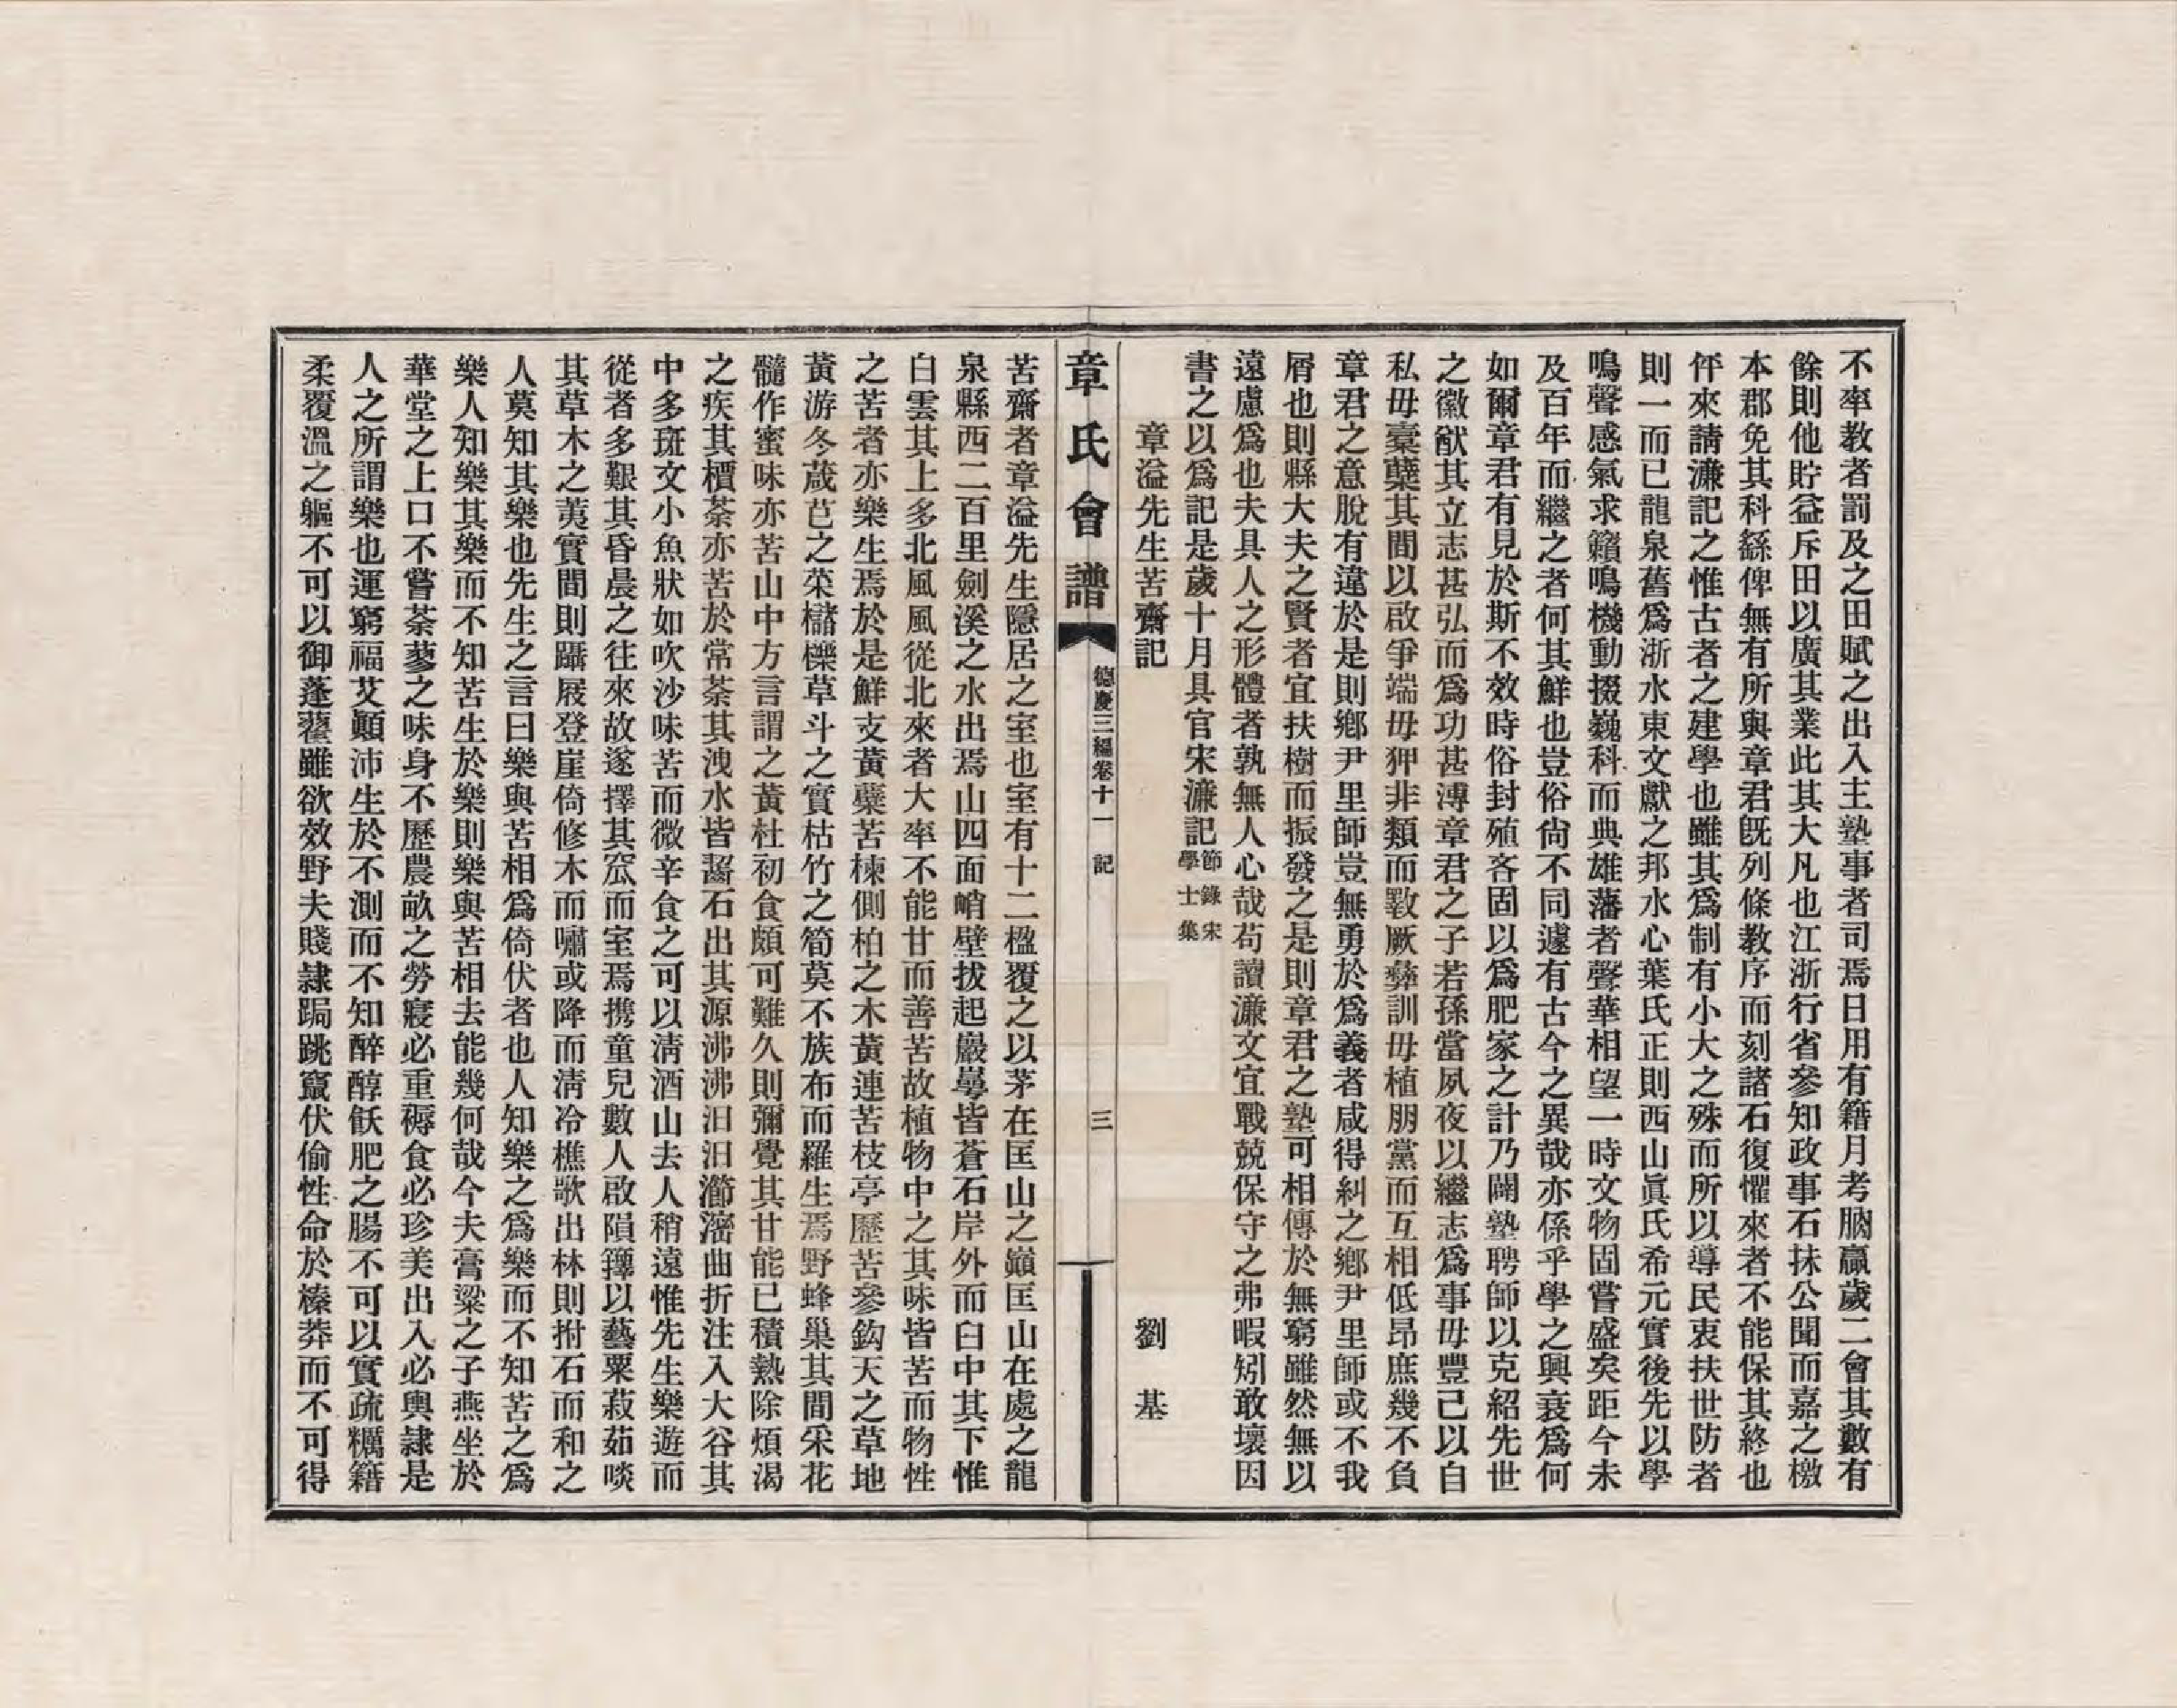 不率教者罰及之田賦之出入主塾事者司焉日用有籍月考朒贏歲二會其數有
餘則他貯益斥田以廣其業此其大凡也江浙行省參知政事石抹公聞而嘉之檄
本郡免其科繇俾無有所與章君既列條教序而刻諸石復懼來者不能保其終也
伻來請濂記之惟古者之建學也雖其爲制有小大之殊而所以導民衷扶世防者
則一而已龍泉舊爲浙水東文獻之邦水心葉氏正則西山眞氏希元實後先以學
鳴聲感氣求籟鳴機動掇巍科而典雄藩者聲華相望一時文物固嘗盛矣距今未
及百年而繼之者何其鮮也豈俗尙不同遽有古今之異哉亦係乎學之興衰爲何
如爾章君有見於斯不效時俗封殖吝固以爲肥家之計乃闢塾聘師以克紹先世
之徽猷其立志甚弘而爲功甚溥章君之子若孫當夙夜以繼志爲事毋豐己以自
私毋橐蘖其間以啟爭端毋狎非類而斁厥彝訓毋植朋黨而互相低昂庶幾不負
章君之意脫有違於是則鄕尹里師豈無勇於爲義者咸得糾之鄕尹里師或不我
屑也則縣大夫之賢者宜扶樹而振發之是則章君之塾可相傳於無窮雖然無以
遠慮爲也夫具人之形體者孰無人心哉苟讀濂文宜戰兢保守之弗暇矧敢壞因
書之以爲記是歲十月具官宋濂記節錄宋學士集
章溢先生苦齋記　劉基
章氏會譜　德慶三編卷十一　記　三
苦齋者章溢先生隱居之室也室有十二楹覆之以茅在匡山之巔匡山在處之龍
泉縣西二百里劍溪之水出焉山四面峭壁拔起巖崿皆蒼石岸外而臼中其下惟
白雲其上多北風風從北來者大率不能甘而善苦故植物中之其味皆苦而物性
之苦者亦樂生焉於是鮮支黃蘗苦楝側柏之木黃連苦枝亭歷苦參鈎夭之草地
黃游冬葴芑之菜櫧櫟草斗之實枯竹之筍莫不族布而羅生焉野蜂巢其間采花
髓作蜜味亦苦山中方言謂之黃杜初食頗可難久則彌覺其甘能已積熱除煩渴
之疾其檟荼亦苦於常荼其洩水皆齧石出其源沸沸汨汨瀄滵曲折注入大谷其
中多斑文小魚狀如吹沙味苦而微辛食之可以淸酒山去人稍遠惟先生樂遊而
從者多艱其昏晨之往來故遂擇其窊而室焉携童兒數人啟隕籜以藝粟菽茹啖
其草木之荑實間則躡屐登崖倚修木而嘯或降而淸冷樵歌出林則拊石而和之
人莫知其樂也先生之言曰樂與苦相爲倚伏者也人知樂之爲樂而不知苦之爲
樂人知樂其樂而不知苦生於樂則樂與苦相去能幾何哉今夫膏粱之子燕坐於
華堂之上口不嘗荼蓼之味身不歷農畝之勞寢必重褥食必珍美出入必輿隸是
人之所謂樂也運窮福艾顚沛生於不測而不知醉醇飫肥之腸不可以實疏糲籍
柔覆溫之軀不可以御蓬藋雖欲效野夫賤隸跼跳竄伏偷性命於榛莽而不可得